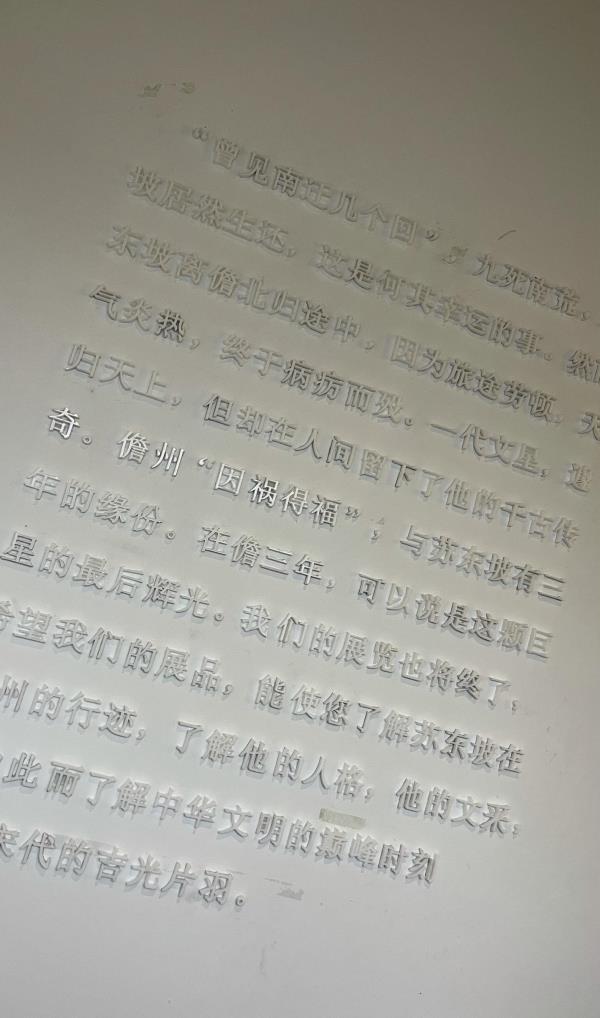 “曾见南迁几个回”，九死南荒，
坡居然生还，这是何其幸运的事。然而
东坡离儋北归途中，因为旅途劳顿，天
气炎热，终于病疠而殁。一代文星，遽
归天上，但却在人间留下了他的千古传
奇。儋州“因祸得福”，与苏东坡有三
年的缘份。在儋三年，可以说是这颗巨
星的最后辉光。我们的展览也将终了，
希望我们的展品，能使您了解苏东坡在
州的行迹，了解他的人格，他的文采，
此而了解中华文明的巅峰时刻
宋代的吉光片羽。